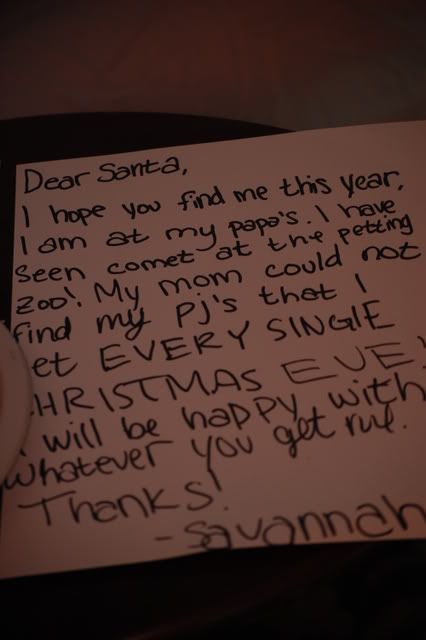 Dear Santa,
I hope you find me this year,
I am at my papa's. I have
seen comet at the petting
zoo! My mom could not
find my PJ's that I
et EVERY SINGLE
HRISTMAS EVE!
I will be happy with
whatever you get me.
Thanks!
-Savannah